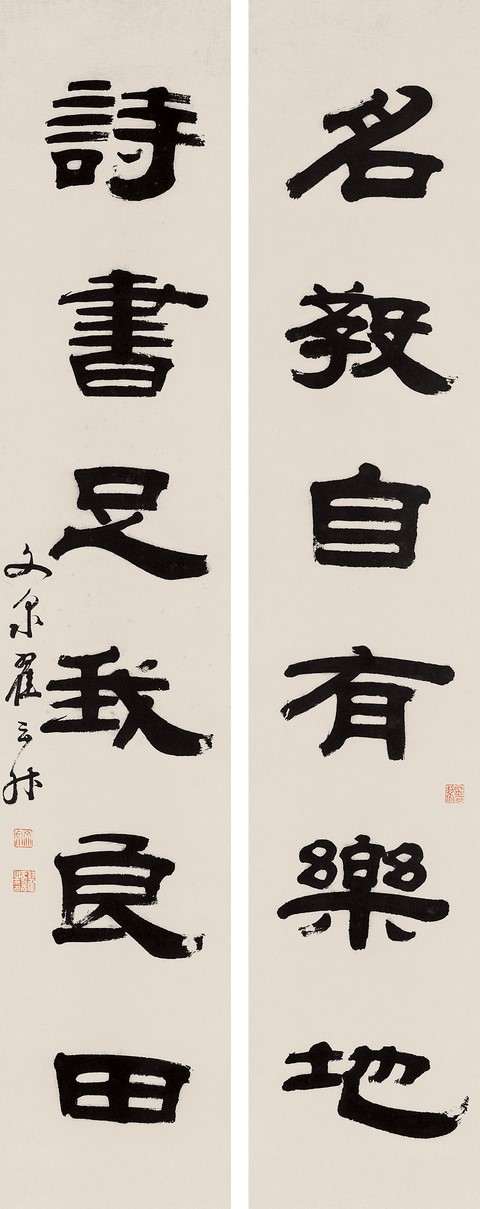 名教自有樂地
詩書足我良田
文泉翟云升